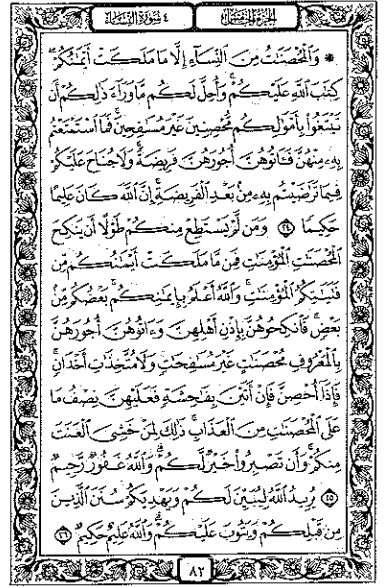 الجزء الخامس ٤ سورة النساء
۞ وَالْمُحْصَنَٰتُ مِنَ النِّسَآءِ إِلَّا مَا مَلَكَتْ أَيْمَٰنُكُمْ ۖ
كِتَٰبَ اللَّهِ عَلَيْكُمْ ۚ وَأُحِلَّ لَكُم مَّا وَرَآءَ ذَٰلِكُمْ أَن
تَبْتَغُوا۟ بِأَمْوَٰلِكُم مُّحْصِنِينَ غَيْرَ مُسَٰفِحِينَ ۚ فَمَا اسْتَمْتَعْتُم
بِهِۦ مِنْهُنَّ فَـَٔاتُوهُنَّ أُجُورَهُنَّ فَرِيضَةً ۚ وَلَا جُنَاحَ عَلَيْكُمْ
فِيمَا تَرَٰضَيْتُم بِهِۦ مِنۢ بَعْدِ الْفَرِيضَةِ ۚ إِنَّ اللَّهَ كَانَ عَلِيمًا
حَكِيمًا ٢٤ وَمَن لَّمْ يَسْتَطِعْ مِنكُمْ طَوْلًا أَن يَنكِحَ
الْمُحْصَنَٰتِ الْمُؤْمِنَٰتِ فَمِن مَّا مَلَكَتْ أَيْمَٰنُكُم مِّن
فَتَيَٰتِكُمُ الْمُؤْمِنَٰتِ ۚ وَاللَّهُ أَعْلَمُ بِإِيمَٰنِكُم ۚ بَعْضُكُم مِّنۢ
بَعْضٍ ۚ فَانكِحُوهُنَّ بِإِذْنِ أَهْلِهِنَّ وَءَاتُوهُنَّ أُجُورَهُنَّ
بِالْمَعْرُوفِ مُحْصَنَٰتٍ غَيْرَ مُسَٰفِحَٰتٍ وَلَا مُتَّخِذَٰتِ أَخْدَانٍ ۚ
فَإِذَآ أُحْصِنَّ فَإِنْ أَتَيْنَ بِفَٰحِشَةٍ فَعَلَيْهِنَّ نِصْفُ مَا
عَلَى الْمُحْصَنَٰتِ مِنَ الْعَذَابِ ۚ ذَٰلِكَ لِمَنْ خَشِىَ الْعَنَتَ
مِنكُمْ ۚ وَأَن تَصْبِرُوا۟ خَيْرٌ لَّكُمْ ۗ وَاللَّهُ غَفُورٌ رَّحِيمٌ
٢٥ يُرِيدُ اللَّهُ لِيُبَيِّنَ لَكُمْ وَيَهْدِيَكُمْ سُنَنَ الَّذِينَ
مِن قَبْلِكُمْ وَيَتُوبَ عَلَيْكُمْ ۗ وَاللَّهُ عَلِيمٌ حَكِيمٌ ٢٦
٨٢